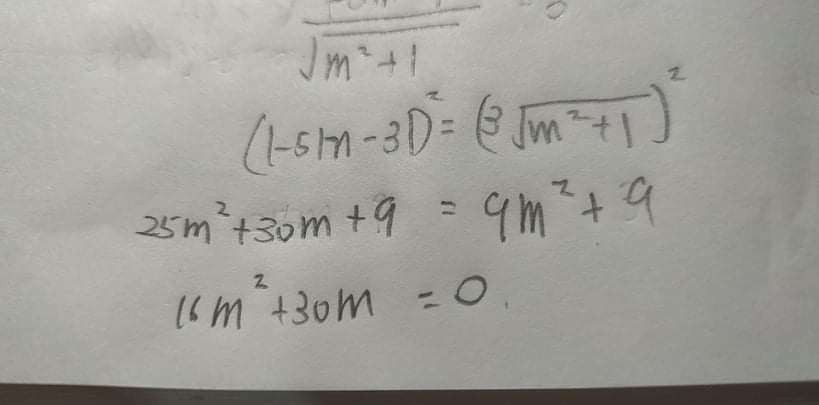 √m²+1
(|-5m-3|)² = (3√m²+1)²
25m²+30m+9 = 9m²+9
16m²+30m = 0.